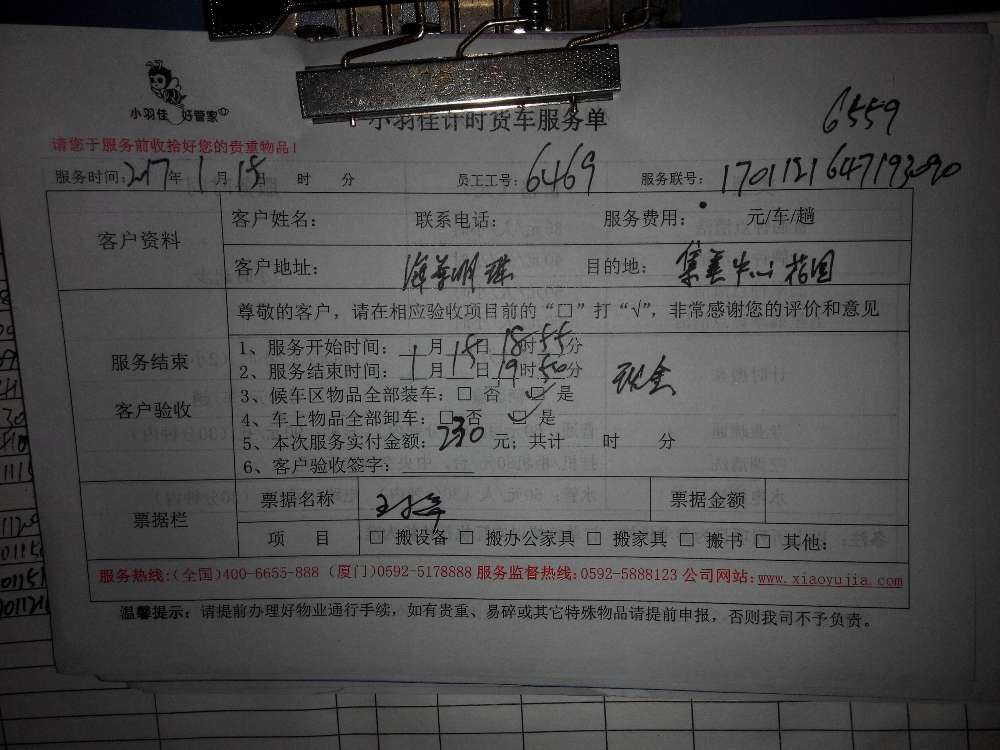 小羽佳 好管家
小羽佳计时货车服务单
6559
请您于服务前收拾好您的贵重物品!
服务时间:2017年1月18日 时 分 员工工号:6469 服务联号:1701121647193090
客户资料
客户姓名: 联系电话: 服务费用: 元/车/趟
客户地址: 海 明 目的地: 集美中心花园
尊敬的客户，请在相应验收项目前的“□”打“√”，非常感谢您的评价和意见
服务结束
客户验收
1、服务开始时间: 1月18日18时55分
2、服务结束时间: 1月18日19时50分
现金
3、候车区物品全部装车: □ 否 ☑ 是
4、车上物品全部卸车: □ 否 ☑ 是
5、本次服务实付金额: 230 元; 共计 时 分
6、客户验收签字:
票据栏
票据名称 票据金额
项 目 □ 搬设备 □ 搬办公家具 □ 搬家具 □ 搬书 □ 其他:
服务热线:(全国)400-6655-888 (厦门)0592-5178888 服务监督热线:0592-5888123 公司网站:www.xiaoyujia.com
温馨提示: 请提前办理好物业通行手续，如有贵重、易碎或其它特殊物品请提前申报，否则我司不予负责。